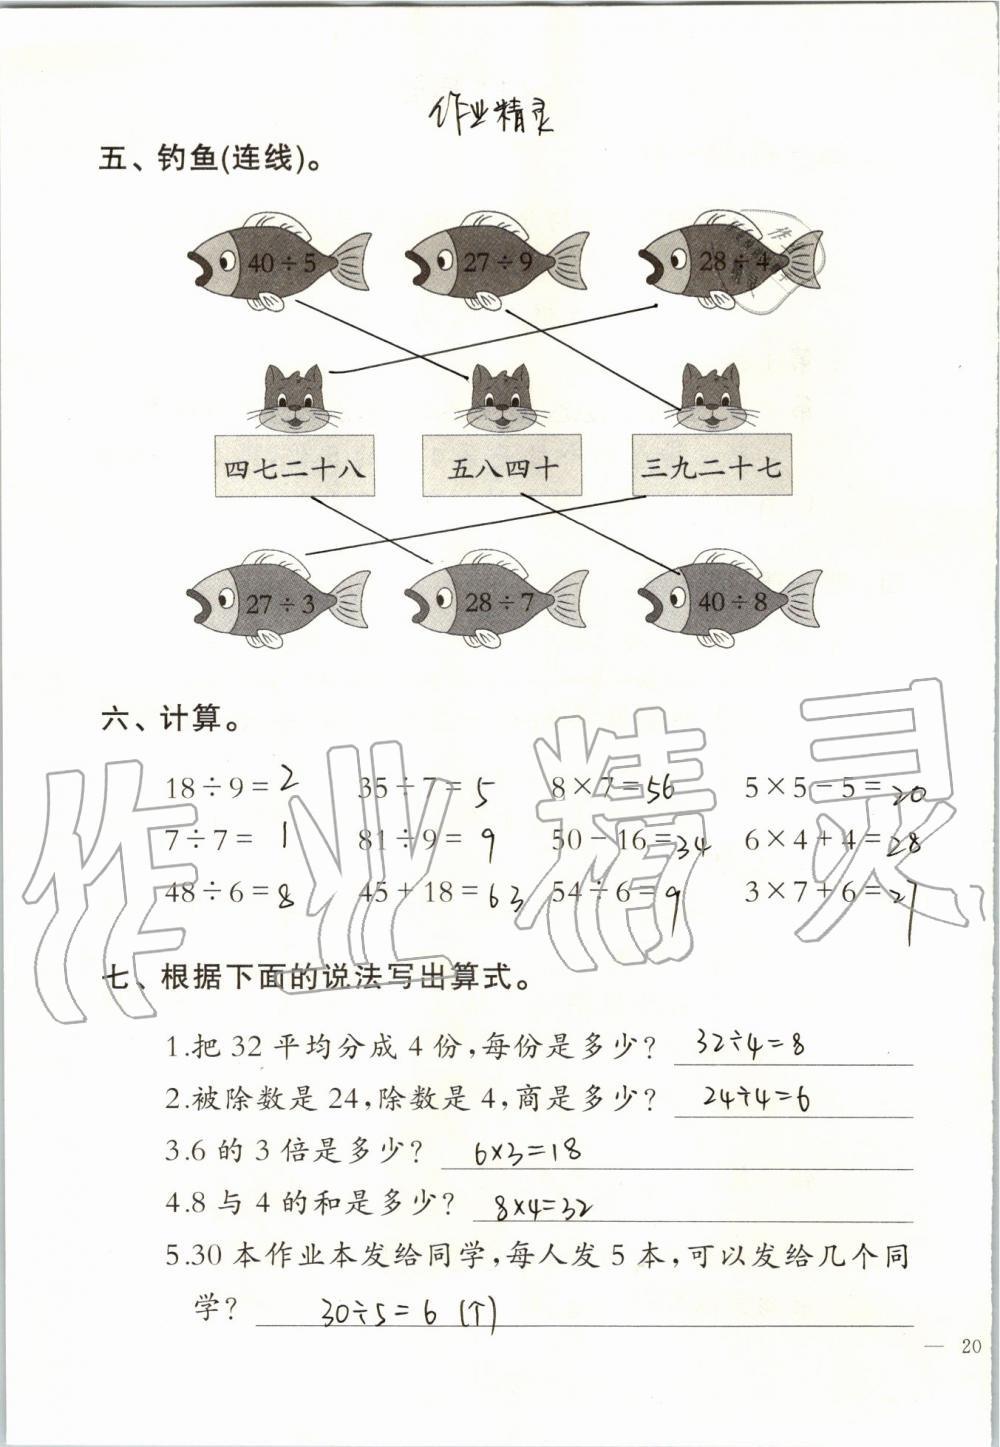 作业精灵
五、钓鱼(连线)。
40÷5 27÷9 28÷4
四七二十八 五八四十 三九二十七
27÷3 28÷7 40÷8
六、计算。
18÷9=2 35÷7=5 8×7=56 5×5-5=20
7÷7=1 81÷9=9 50-16=34 6×4+4=28
48÷6=8 45+18=63 54÷6=9 3×7+6=27
七、根据下面的说法写出算式。
1.把32平均分成4份,每份是多少? 32÷4=8
2.被除数是24,除数是4,商是多少? 24÷4=6
3.6的3倍是多少? 6×3=18
4.8与4的和是多少? 8×4=32
5.30本作业本发给同学,每人发5本,可以发给几个同
学? 30÷5=6(个)
— 20
作业精灵